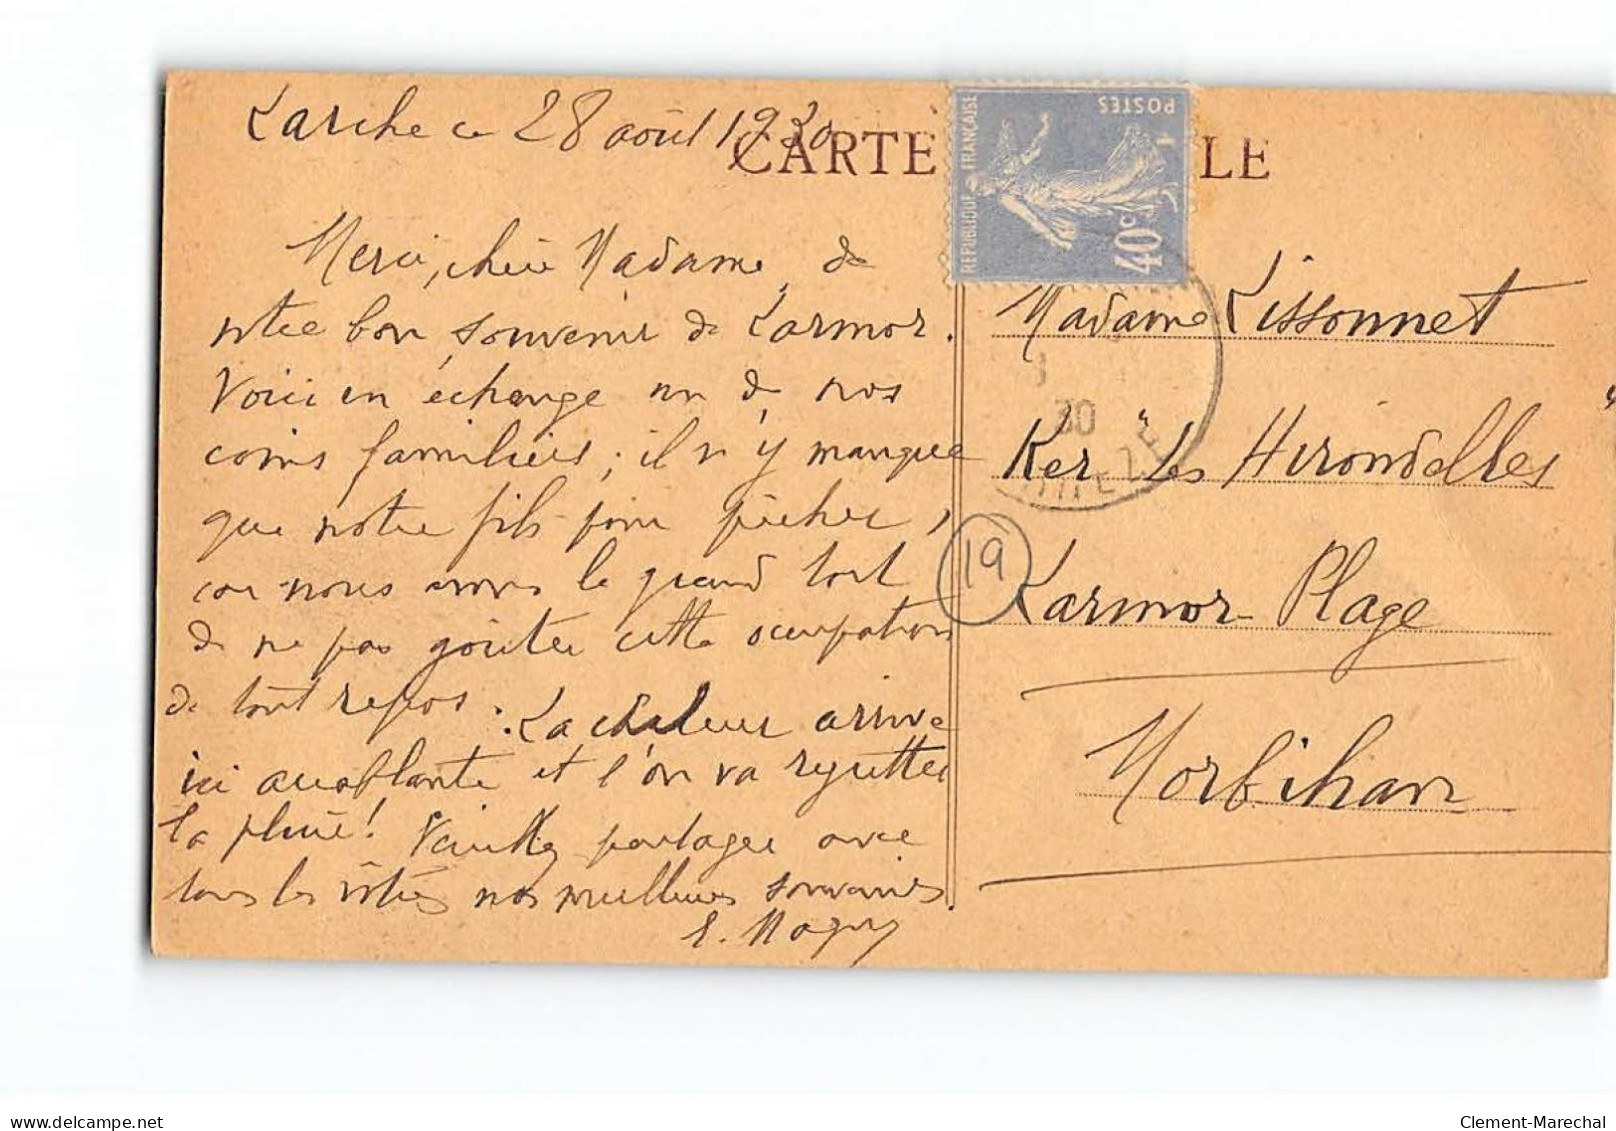 Larche ce 28 août 1930
CARTE LE
REPUBLIQUE FRANÇAISE
POSTES
40c
Merci, chère Madame, de
votre bon souvenir de Larmor.
Voici en échange un de nos
coins familiers ; il n'y manque
que notre fils pour pêcher,
car nous avons le grand tort
de ne pas goûter cette occupation
de tout repos. La chaleur arrive
ici accablante et l'on va regretter
la pluie ! Veuillez partager avec
tous les vôtres nos meilleurs souvenirs.
E. Magny
30
Madame Lissonnet
Ker "Les Hirondelles"
19
Larmor-Plage
Morbihan
Clement-Marechal